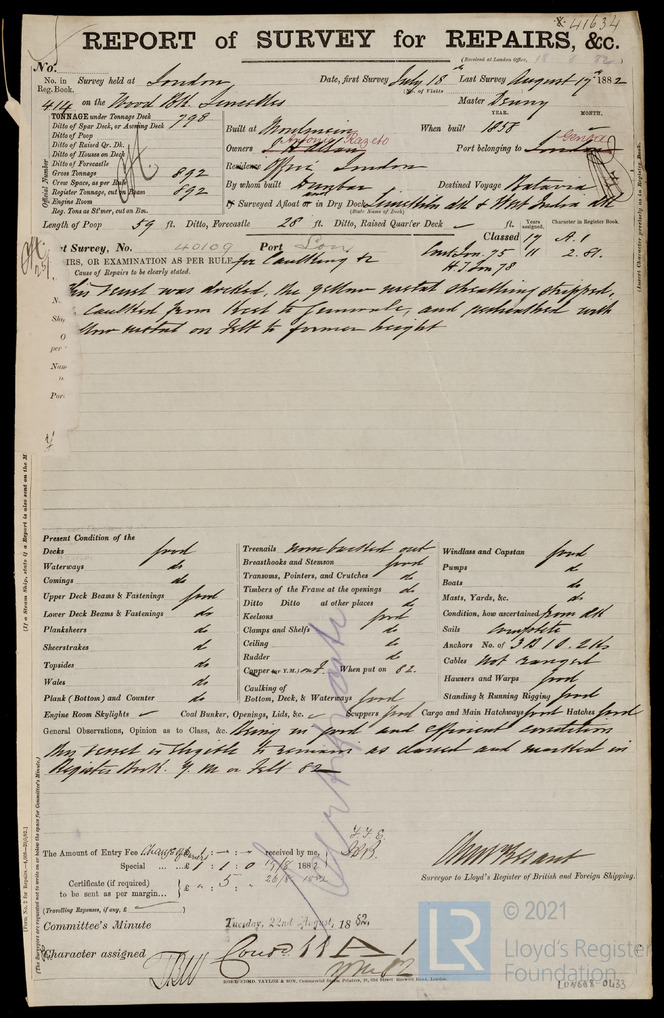 41634
REPORT of SURVEY for REPAIRS, &c.
(Received at London Office,
No.
No. in Reg. Book. Survey held at London Date, first Survey July 18th Last Survey August 17th 1882
(No. of Visits
414 on the Wood Bk. Master Denny
TONNAGE under Tonnage Deck 798
Ditto of Spar Deck, or Awning Deck
Ditto of Poop
Ditto of Raised Qr. Dk.
Ditto of Houses on Deck
Ditto of Forecastle
Gross Tonnage 892
Crew Space, as per Rule
Register Tonnage, cut on Beam 892
Engine Room
Reg. Tons as St'mer, cut on Bm.
Official Number
YEAR. MONTH.
Built at When built 1858
Owners Razeto Port belonging to London Genoa
Residence London
By whom built Dunbar Destined Voyage Batavia
If Surveyed Afloat or in Dry Dock Limehouse dk & West India Dk
(State Name of Dock)
Length of Poop 59 ft. Ditto, Forecastle 28 ft. Ditto, Raised Quarter Deck ft.
Years assigned. Character in Register Book.
Classed 17 A.1
Lon. 75 - 11 2.81.
Lon 78
t Survey, No. 40109 Port Lon
IRS, OR EXAMINATION AS PER RULE for Caulking &c
Cause of Repairs to be clearly stated.
This vessel was docked, the yellow metal sheathing stripped,
caulked from keel to gunwale, and resheathed with
yellow metal on felt to former height
Present Condition of the
Decks good
Waterways do
Comings do
Upper Deck Beams & Fastenings good
Lower Deck Beams & Fastenings do
Planksheers do
Sheerstrakes do
Topsides do
Wales do
Plank (Bottom) and Counter do
Treenails none backed out
Breasthooks and Stemson good
Transoms, Pointers, and Crutches do
Timbers of the Frame at the openings do
Ditto Ditto at other places do
Keelsons good
Clamps and Shelfs do
Ceiling do
Rudder do
Copper (or Y.M.) on F. When put on 82.
Caulking of
Bottom, Deck, & Waterways good
Windlass and Capstan good
Pumps do
Boats do
Masts, Yards, &c. do
Condition, how ascertained from dk
Sails complete
Anchors No. of 3B 1S. 2Ks
Cables not ranged
Hawsers and Warps good
Standing & Running Rigging good
Engine Room Skylights Coal Bunker, Openings, Lids, &c. Scuppers good Cargo and Main Hatchways good Hatches good
General Observations, Opinion as to Class, &c. Being in good and efficient condition
this vessel is eligible to remain as classed and marked in
Register Book. Y.M. on Felt 82
The Amount of Entry Fee received by me,
Special £ 1 : 1 : 0 17/8 1882
Certificate (if required) to be sent as per margin £ : 5 : 1882
(Travelling Expenses, if any, £
Surveyor to Lloyd's Register of British and Foreign Shipping.
Committee's Minute Tuesday, 22nd August, 1882.
Character assigned
ROBT. EDMD. TAYLOR & SON, Commercial Steam Printers, London.
LR
© 2021
Lloyd's Register
Foundation
LON668-0433